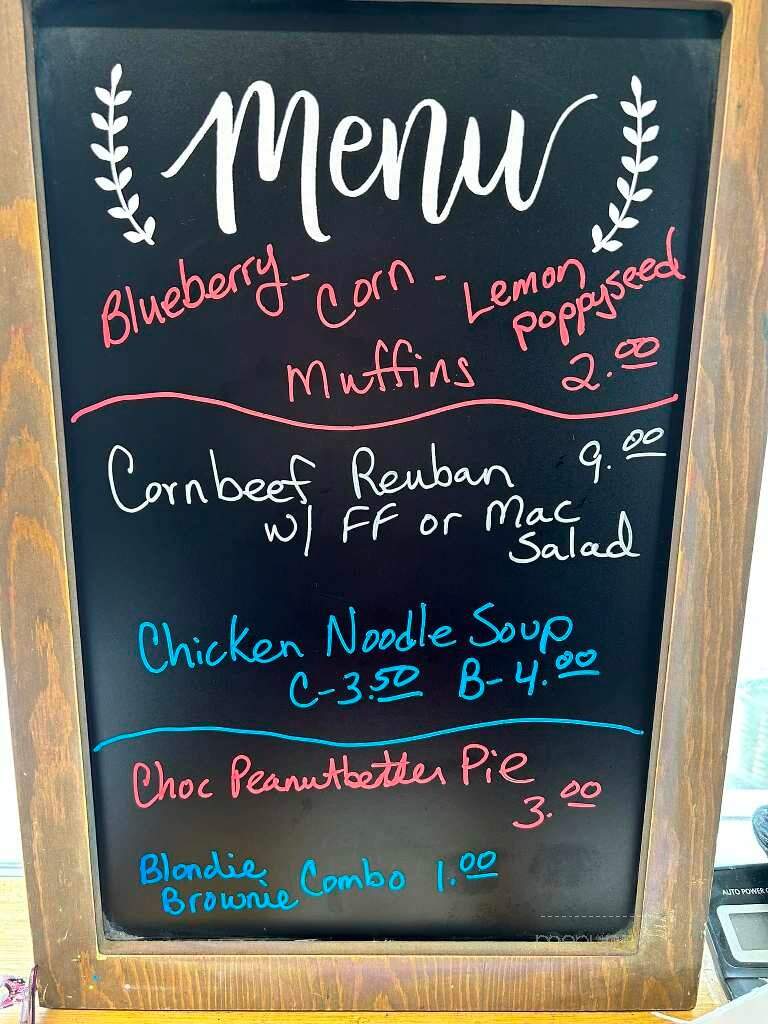 Menu
Blueberry - Corn - Lemon
poppyseed
Muffins 2.00
Cornbeef Reuban 9.00
w/ FF or Mac
Salad
Chicken Noodle Soup
C-3.50 B-4.00
Choc Peanutbetter Pie
3.00
Blondie
Brownie Combo 1.00
AUTO POWER